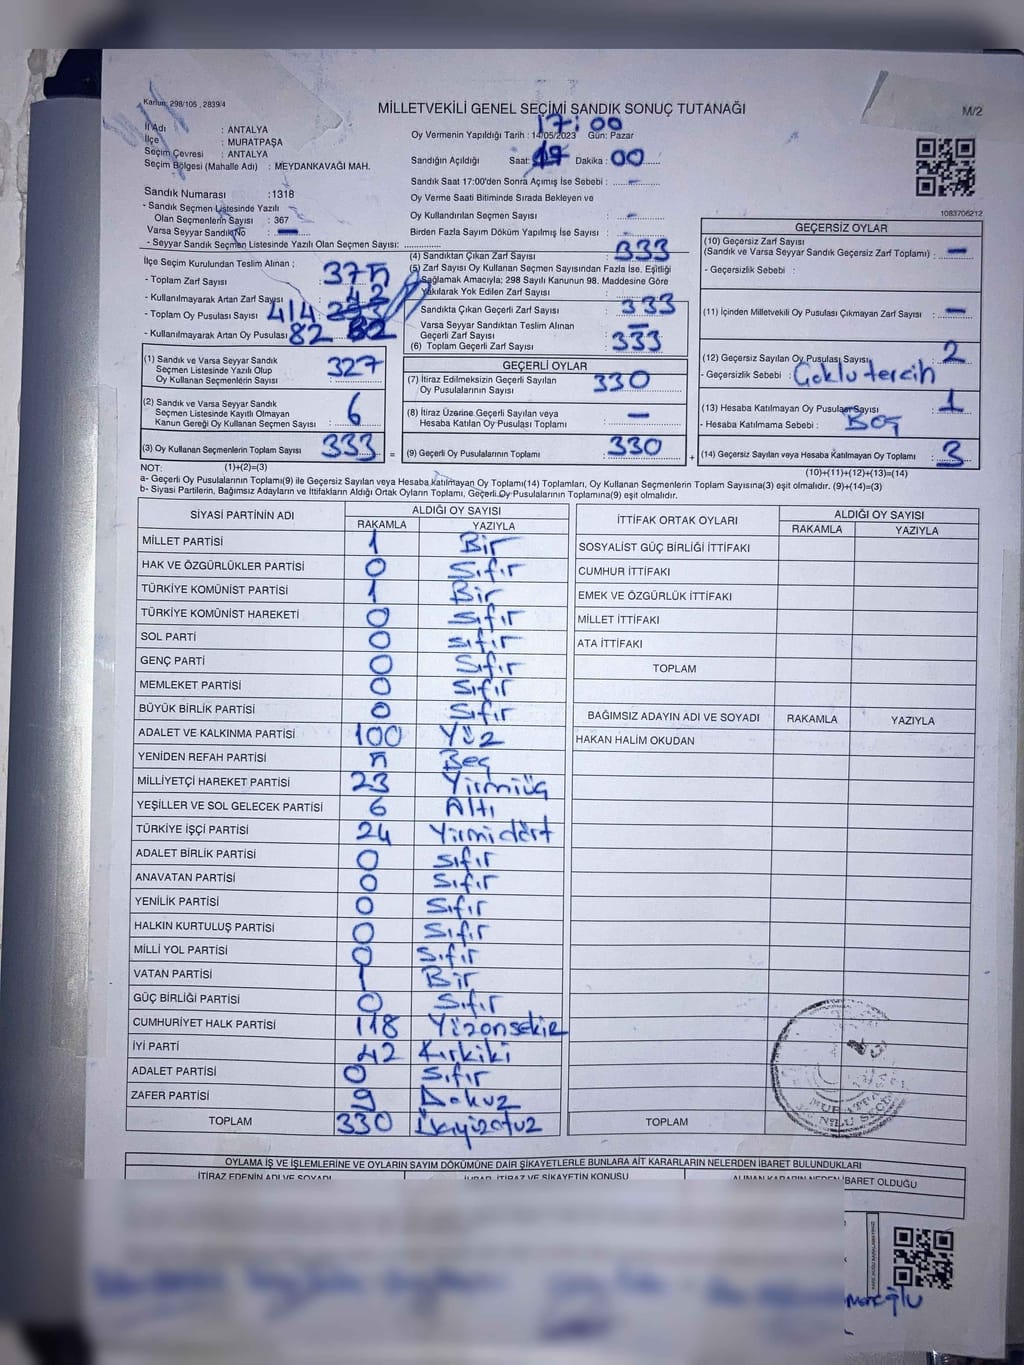 Kanun: 298/105 , 2839/4
MİLLETVEKİLİ GENEL SEÇİMİ SANDIK SONUÇ TUTANAĞI
M/2
İl Adı : ANTALYA
İlçe : MURATPAŞA
Seçim Çevresi : ANTALYA
Seçim Bölgesi (Mahalle Adı) : MEYDANKAVAĞI MAH.
Sandık Numarası :1318
- Sandık Seçmen Listesinde Yazılı
Olan Seçmenlerin Sayısı : 367
Varsa Seyyar Sandık No : —
- Seyyar Sandık Seçmen Listesinde Yazılı Olan Seçmen Sayısı: ..............
17:00
Oy Vermenin Yapıldığı Tarih : 14/05/2023 Gün: Pazar
Sandığın Açıldığı Saat: Dakika : 00
Sandık Saat 17:00'den Sonra Açımış İse Sebebi : —
Oy Verme Saati Bitiminde Sırada Bekleyen ve
Oy Kullandırılan Seçmen Sayısı : —
Birden Fazla Sayım Döküm Yapılmış İse Sayısı : —
1083706212
İlçe Seçim Kurulundan Teslim Alınan :
- Toplam Zarf Sayısı 375
- Kullanılmayarak Artan Zarf Sayısı 42
- Toplam Oy Pusulası Sayısı 414
- Kullanılmayarak Artan Oy Pusulası 82
(1) Sandık ve Varsa Seyyar Sandık
Seçmen Listesinde Yazılı Olup
Oy Kullanan Seçmenlerin Sayısı : 327
(2) Sandık ve Varsa Seyyar Sandık
Seçmen Listesinde Kayıtlı Olmayan
Kanun Gereği Oy Kullanan Seçmen Sayısı : 6
(3) Oy Kullanan Seçmenlerin Toplam Sayısı : 333 =
(4) Sandıktan Çıkan Zarf Sayısı : 333
(5) Zarf Sayısı Oy Kullanan Seçmen Sayısından Fazla İse, Eşitliği
Sağlamak Amacıyla; 298 Sayılı Kanunun 98. Maddesine Göre
Yakılarak Yok Edilen Zarf Sayısı :
Sandıkta Çıkan Geçerli Zarf Sayısı : 333
Varsa Seyyar Sandıktan Teslim Alınan
Geçerli Zarf Sayısı : —
(6) Toplam Geçerli Zarf Sayısı : 333
GEÇERLİ OYLAR
(7) İtiraz Edilmeksizin Geçerli Sayılan
Oy Pusulalarının Sayısı : 330
(8) İtiraz Üzerine Geçerli Sayılan veya
Hesaba Katılan Oy Pusulası Toplamı : —
(9) Geçerli Oy Pusulalarının Toplamı : 330 +
GEÇERSİZ OYLAR
(10) Geçersiz Zarf Sayısı
(Sandık ve Varsa Seyyar Sandık Geçersiz Zarf Toplamı) : —
- Geçersizlik Sebebi :
(11) İçinden Milletvekili Oy Pusulası Çıkmayan Zarf Sayısı : —
(12) Geçersiz Sayılan Oy Pusulası Sayısı : 2
- Geçersizlik Sebebi : Çoklu tercih
(13) Hesaba Katılmayan Oy Pusulası Sayısı : 1
- Hesaba Katılmama Sebebi : Boş
(14) Geçersiz Sayılan veya Hesaba Katılmayan Oy Toplamı : 3
NOT: (1)+(2)=(3) (10)+(11)+(12)+(13)=(14)
a- Geçerli Oy Pusulalarının Toplamı(9) ile Geçersiz Sayılan veya Hesaba Katılmayan Oy Toplamı(14) Toplamları, Oy Kullanan Seçmenlerin Toplam Sayısına(3) eşit olmalıdır. (9)+(14)=(3)
b- Siyasi Partilerin, Bağımsız Adayların ve İttifakların Aldığı Ortak Oyların Toplamı, Geçerli Oy Pusulalarının Toplamına(9) eşit olmalıdır.
SİYASİ PARTİNİN ADI ALDIĞI OY SAYISI
RAKAMLA YAZIYLA
MİLLET PARTİSİ 1 Bir
HAK VE ÖZGÜRLÜKLER PARTİSİ 0 Sıfır
TÜRKİYE KOMÜNİST PARTİSİ 1 Bir
TÜRKİYE KOMÜNİST HAREKETİ 0 Sıfır
SOL PARTİ 0 sıfır
GENÇ PARTİ 0 Sıfır
MEMLEKET PARTİSİ 0 Sıfır
BÜYÜK BİRLİK PARTİSİ 0 Sıfır
ADALET VE KALKINMA PARTİSİ 100 Yüz
YENİDEN REFAH PARTİSİ 5 Beş
MİLLİYETÇİ HAREKET PARTİSİ 23 Yirmiüç
YEŞİLLER VE SOL GELECEK PARTİSİ 6 Altı
TÜRKİYE İŞÇİ PARTİSİ 24 Yirmidört
ADALET BİRLİK PARTİSİ 0 sıfır
ANAVATAN PARTİSİ 0 Sıfır
YENİLİK PARTİSİ 0 Sıfır
HALKIN KURTULUŞ PARTİSİ 0 Sıfır
MİLLİ YOL PARTİSİ 0 Sıfır
VATAN PARTİSİ 1 Bir
GÜÇ BİRLİĞİ PARTİSİ 0 Sıfır
CUMHURİYET HALK PARTİSİ 118 Yüzonsekiz
İYİ PARTİ 42 Kırkiki
ADALET PARTİSİ 0 Sıfır
ZAFER PARTİSİ 9 Dokuz
TOPLAM 330 Üçyüzotuz
İTTİFAK ORTAK OYLARI ALDIĞI OY SAYISI
RAKAMLA YAZIYLA
SOSYALİST GÜÇ BİRLİĞİ İTTİFAKI
CUMHUR İTTİFAKI
EMEK VE ÖZGÜRLÜK İTTİFAKI
MİLLET İTTİFAKI
ATA İTTİFAKI
TOPLAM
BAĞIMSIZ ADAYIN ADI VE SOYADI RAKAMLA YAZIYLA
HAKAN HALİM OKUDAN
TOPLAM
OYLAMA İŞ VE İŞLEMLERİNE VE OYLARIN SAYIM DÖKÜMÜNE DAİR ŞİKAYETLERLE BUNLARA AİT KARARLARIN NELERDEN İBARET BULUNDUKLARI
İTİRAZ EDENİN ADI VE SOYADI İHBAR, İTİRAZ VE ŞİKAYETİN KONUSU ALINAN KARARIN NEDEN İBARET OLDUĞU